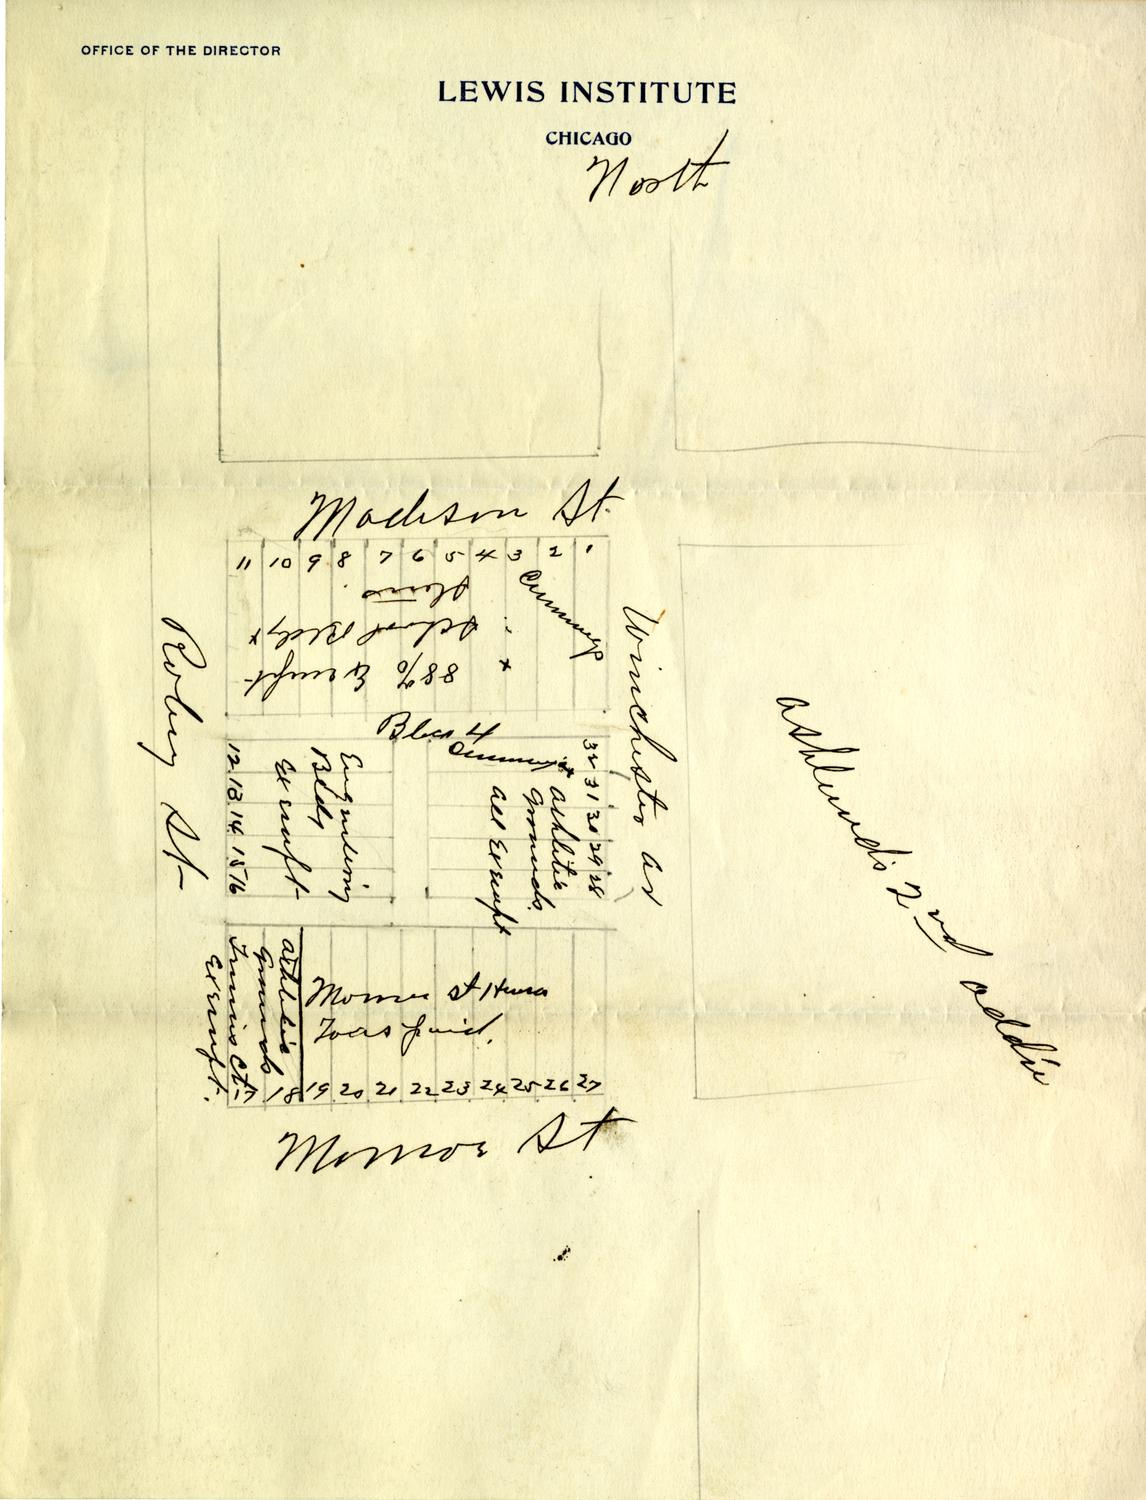 OFFICE OF THE DIRECTOR
LEWIS INSTITUTE
CHICAGO
North
Madison St.
11 10 9 8 7 6 5 4 3 2 1
School Bldg x
88% Exempt
x
Cummings
Roby St
Winchester av
Ashland's 2nd addi
12 13 14 15 16
Engineering
Bldg
Exempt
32 31 30 29 28
Athletic
Grounds
all Exempt
Athletic
Grounds
Tennis Ct.
Exempt.
Monroe St
Taxes paid.
17 18 19 20 21 22 23 24 25 26 27
Monroe St